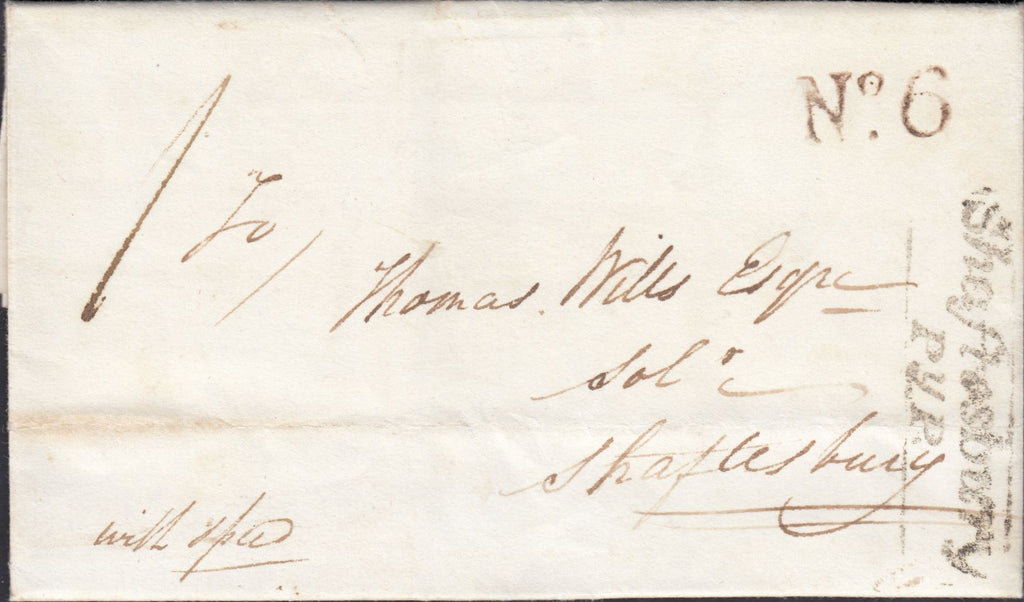 No. 6
1
To
Thomas Wills Esqre
Solr
Shaftesbury
with speed
Shaftesbury
PyP.